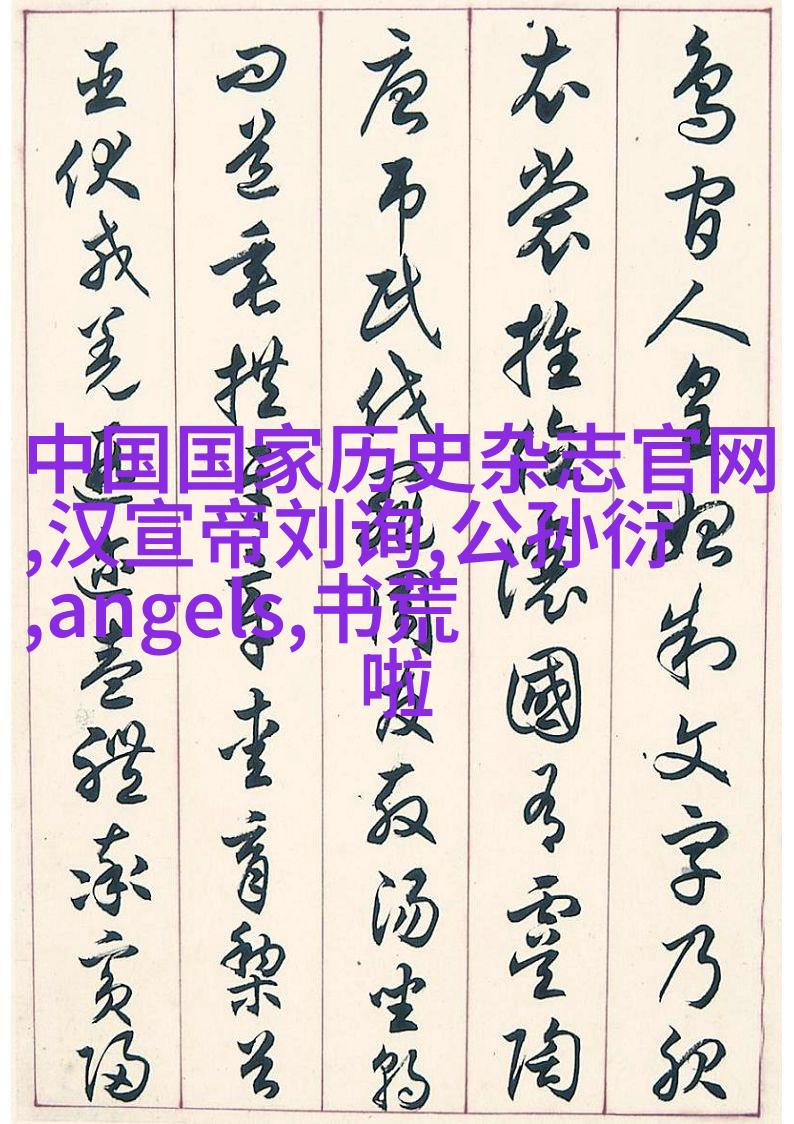 鳥官人皇始制文字乃服
衣裳推位讓國有虞陶
唐弔民伐罪周發殷湯坐朝
問道垂拱平章愛育黎首
臣伏戎羌遐邇壹體率賓歸
中国国家历史杂志官网
,汉宣帝刘询,公孙衍
,angels,书荒
啦